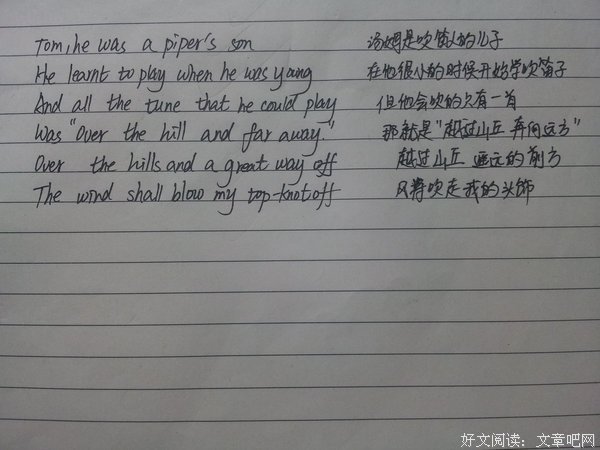 Tom, he was a piper's son 汤姆是吹笛人的儿子
He learnt to play when he was young 在他很小的时候开始学吹笛子
And all the tune that he could play 但他会吹的只有一首
Was "Over the hill and far away." 那就是"越过山丘 奔向远方"
Over the hills and a great way off 越过山丘 遥远的前方
The wind shall blow my top-knot off 风将吹走我的头饰
好文阅读：文章吧网